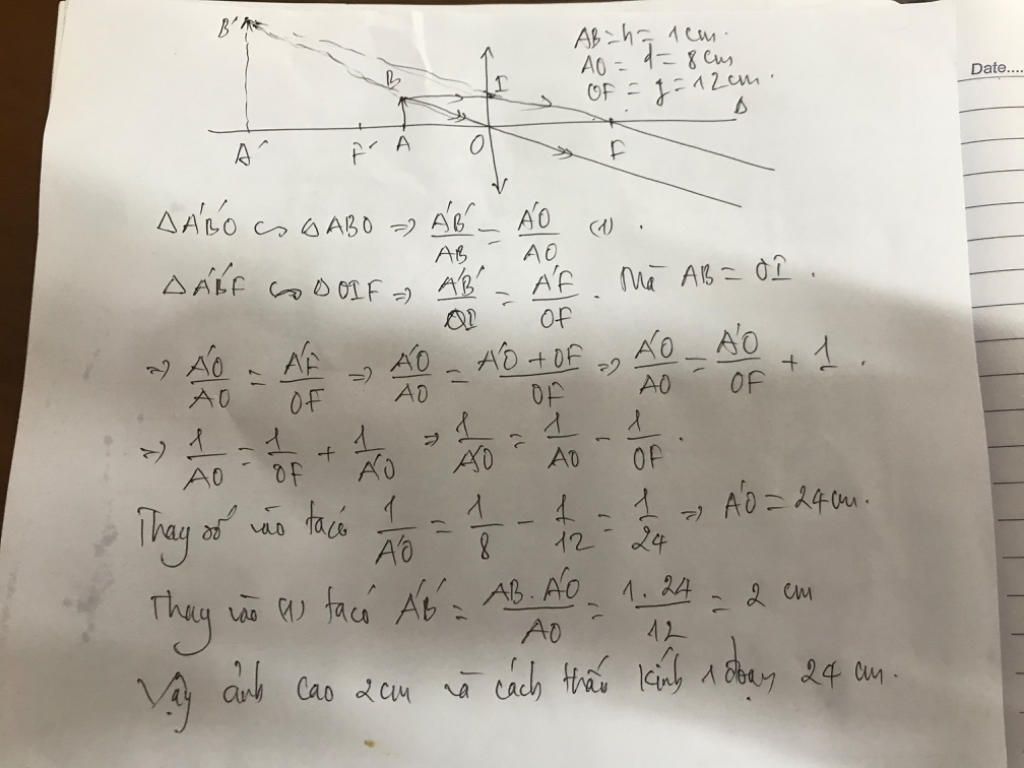 B' AB = h = 1 cm.
AO = d = 8 cm
OF = f = 12 cm.
Date....
B I Δ
A' F' A O F
ΔA'B'O ∽ ΔABO ⇒ A'B'/AB = A'O/AO (1).
ΔA'B'F ∽ ΔOIF ⇒ A'B'/OI = A'F/OF. Mà AB = OI.
⇒ A'O/AO = A'F/OF ⇒ A'O/AO = (A'O + OF)/OF ⇒ A'O/AO = A'O/OF + 1.
⇒ 1/AO = 1/OF + 1/A'O ⇒ 1/A'O = 1/AO - 1/OF.
Thay số vào ta có 1/A'O = 1/8 - 1/12 = 1/24 ⇒ A'O = 24 cm.
Thay vào (1) ta có A'B' = AB.A'O/AO = 1.24/12 = 2 cm
Vậy ảnh cao 2 cm và cách thấu kính 1 đoạn 24 cm.